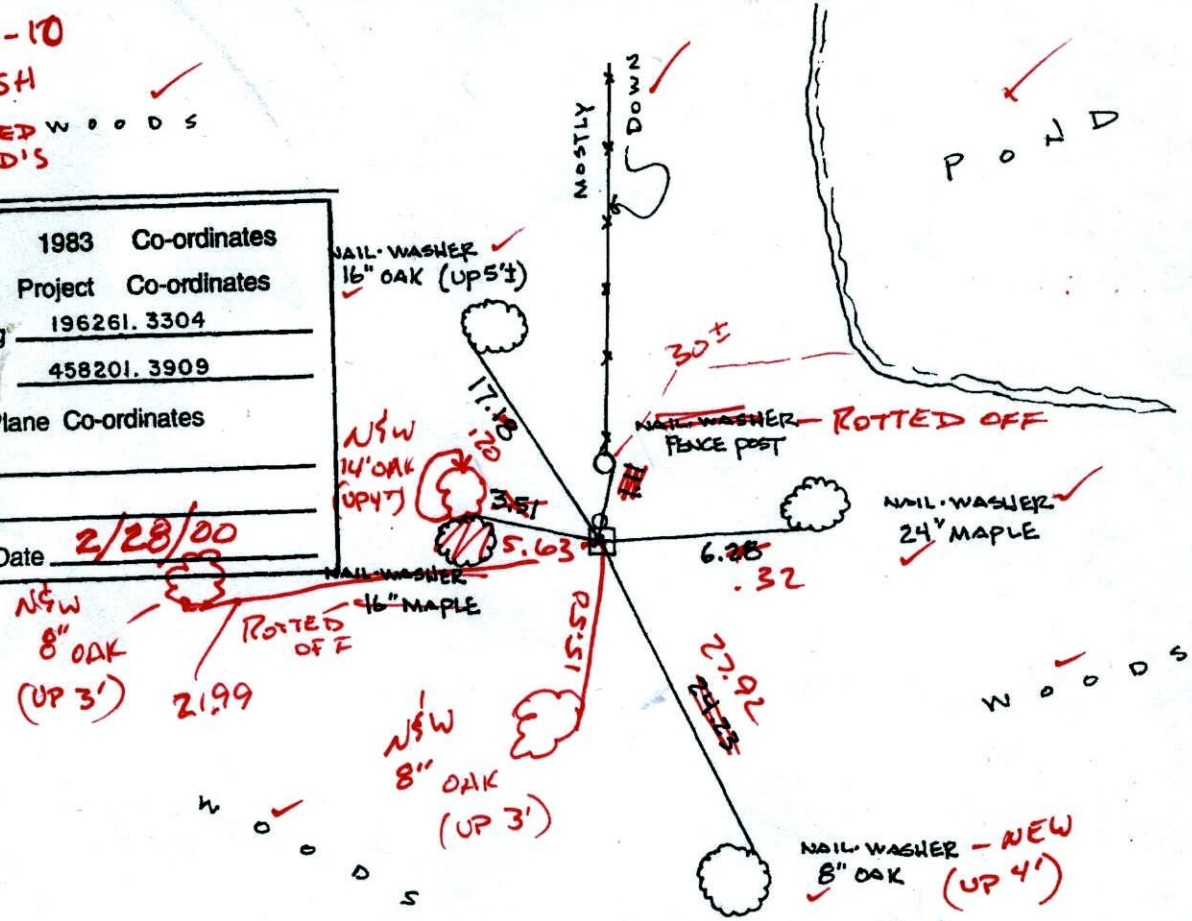 -10
SH
ED
D'S
WOODS
1983 Co-ordinates
Project Co-ordinates
g 196261.3304
458201.3909
Plane Co-ordinates
Date 2/28/00
MOSTLY
DOWN
POND
NAIL·WASHER
16" OAK (UP5'±)
17.18
.20
30±
NAIL·WASHER - ROTTED OFF
FENCE POST
N&W
14" OAK
3.51
5.63
NAIL·WASHER
24" MAPLE
6.28
.32
NAIL·WASHER
16" MAPLE
ROTTED
OFF
N&W
8" OAK
(UP 3')
21.99
N&W
8" OAK
(UP 3')
27.92
24.23
WOODS
WOODS
NAIL·WASHER - NEW
8" OAK (UP 4')